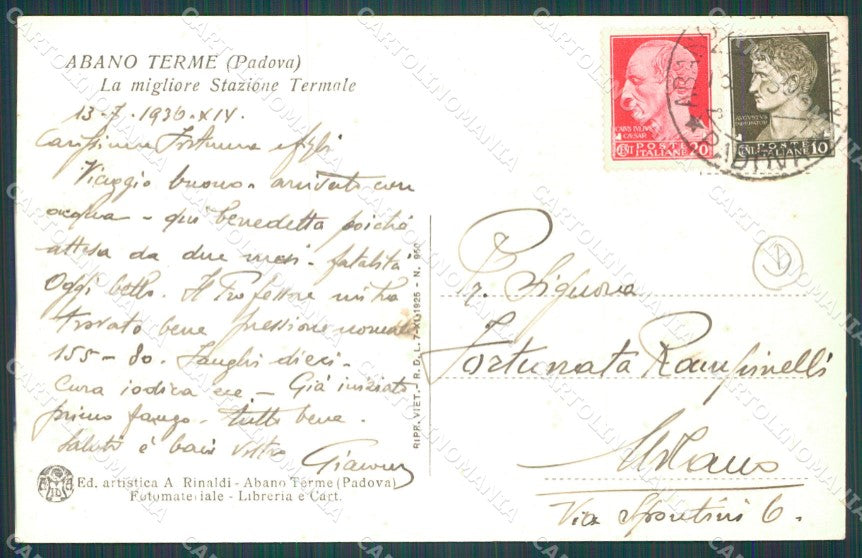 ABANO TERME (Padova)
La migliore Stazione Termale
13-7-1936-XIV.
Carissima Fortunata e figli
Viaggio buono - arrivato con
acqua - qui benedetta poichè
attesa da due mesi - fatalità
Oggi bello. Il Professore mi ha
trovato bene pressione normale
155-80. Fanghi dieci -
Cura iodica ecc - Già iniziato
primo fango - tutto bene.
Saluti e baci vostro
Ed. artistica A. Rinaldi - Abano Terme (Padova)
Fotomateriale - Libreria e Cart.
RIPR. VIET. - R. D. L. 7-XI-1925 - N. 950
CAIVS IVLIVS
CAESAR
CENT POSTE ITALIANE 20
AVGVSTVS
IMPERATOR
CENT POSTE ITALIANE 10
PADOVA
Signora
Fortunata Rampinelli
Milano
Via Spontini 6.
CARTOLINOMANIA